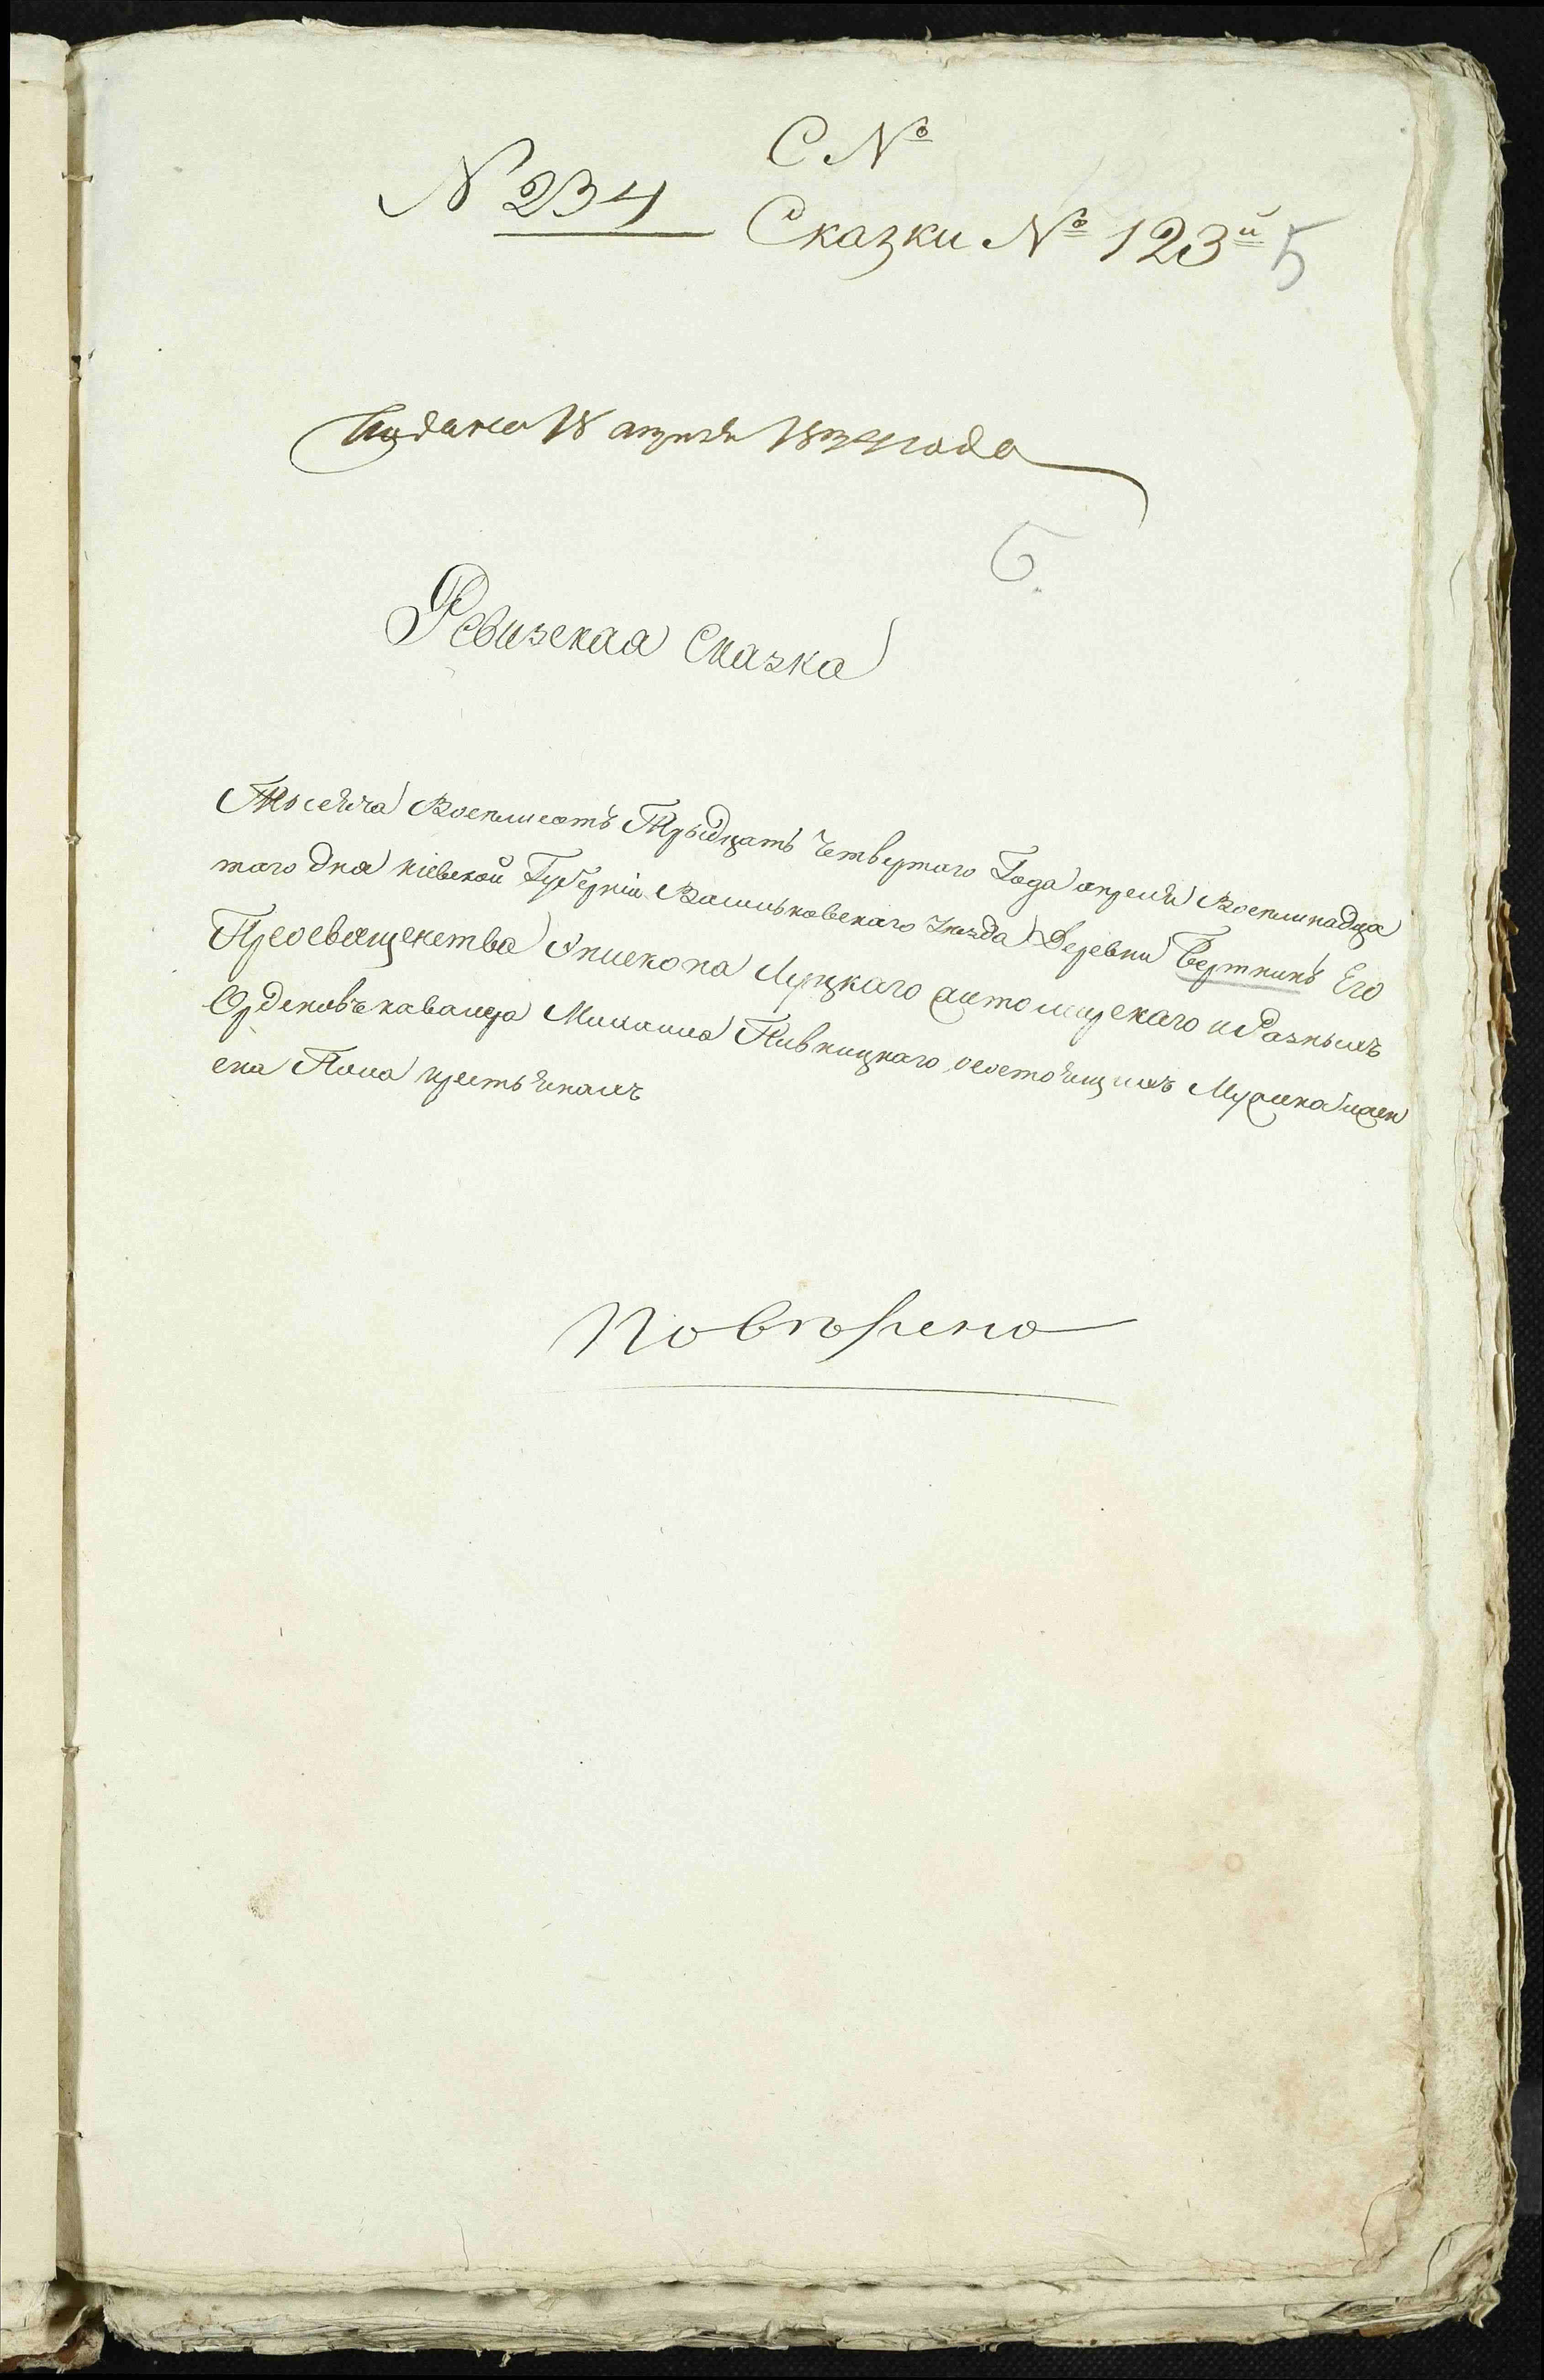 С №
N 234
Сказки № 123й 5
Подано 18 апреля 1834 года
6.
Ревизская Сказка
Тысяча Восемьсотъ Трыдцать Четвертого Года апреля Восемьнадца
того дня кіевской Губерніи Васильковского Уезда Деревни Бертникъ Его
Преосвященства Епископа Луцкаго Житомирскаго и Разныхъ
Орденовъ кавалера Михаила Пивницкаго, осостоящихъ Мужеска и жен
ска Пола крестьянахъ
Повѣрено